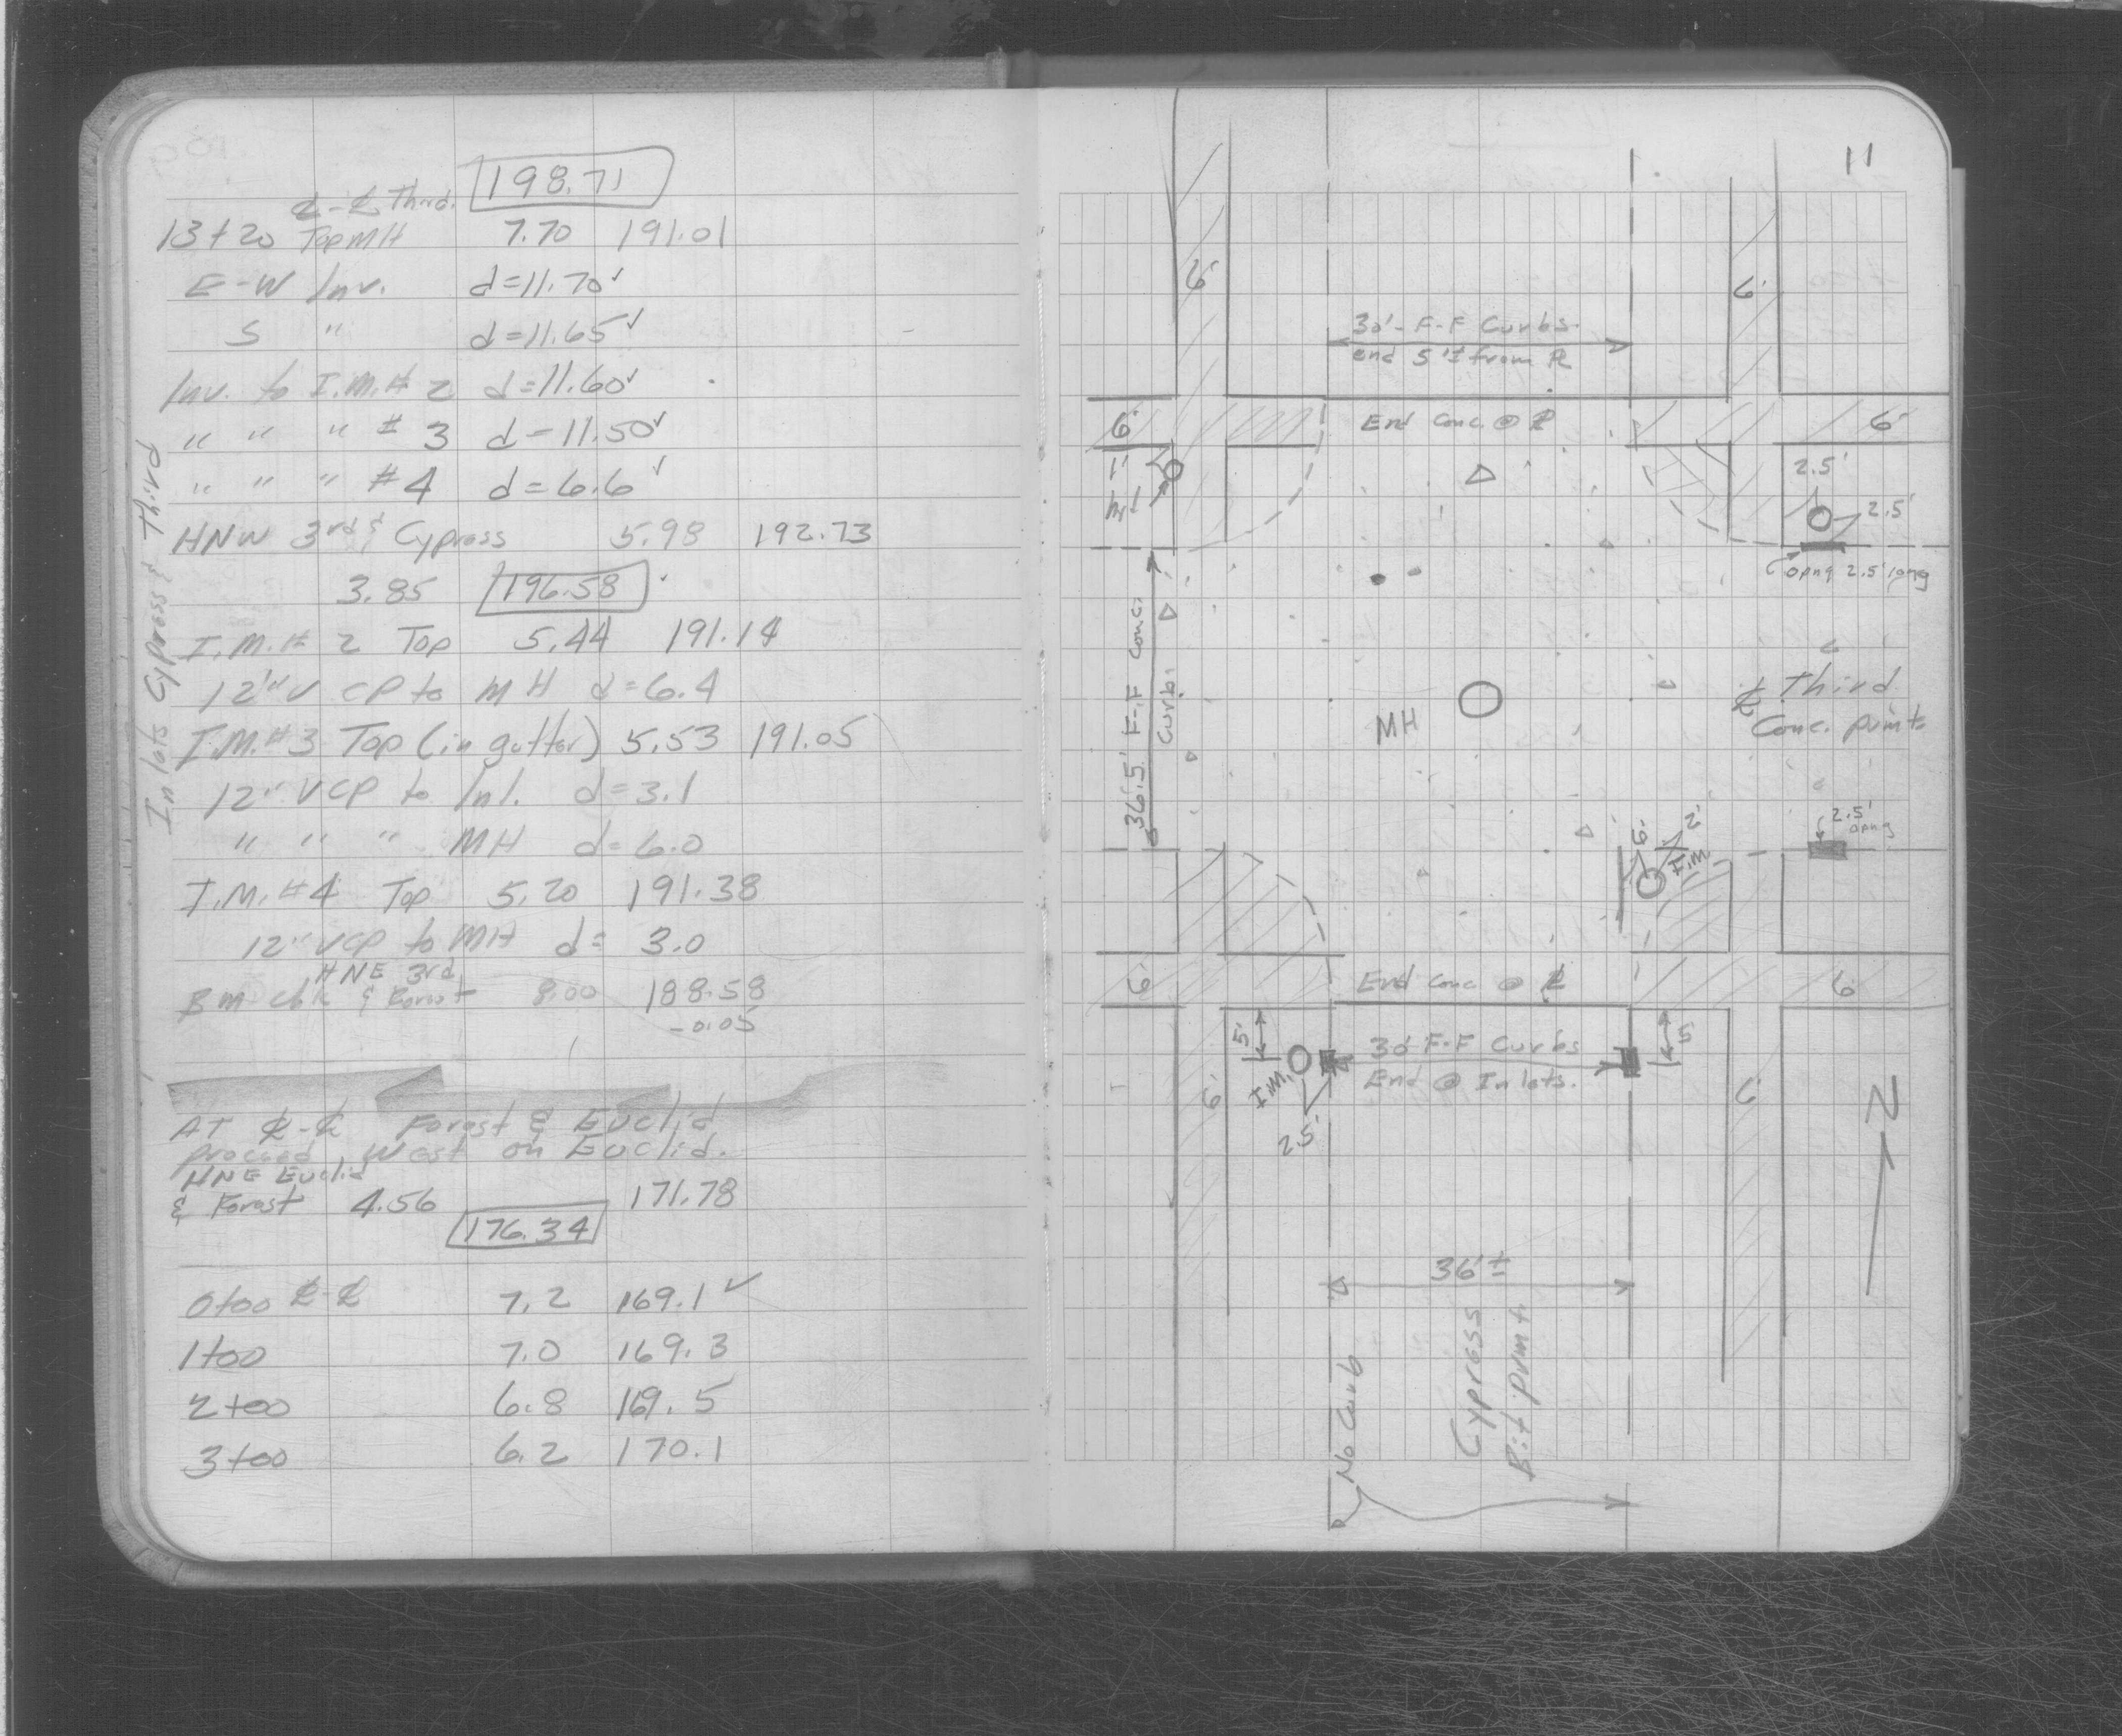 198.71
℄-℄ Third.
13+20 Top MH 7.70 191.01
E-W Inv. d=11.70✓
S " d=11.65✓
Inv. to I.M.# 2 d=11.60✓
" " " # 3 d=11.50✓
" " " #4 d=6.6✓
HNW 3rd & Cypress 5.98 192.73
3.85 196.58
I.M.# 2 Top 5.44 191.14
12" V CP to MH d=6.4
I.M.#3 Top (in gutter) 5.53 191.05
12" VCP to Inl. d=3.1
" " " MH d=6.0
I.M.#4 Top 5.20 191.38
12" VCP to MH d= 3.0
HNE 3rd
BM chk & Forest 8.00 188.58
-0.05
Inlets Cypress & Third
AT ℄-℄ Forest & Euclid
proceed West on Euclid.
HNE Euclid
& Forest 4.56 171.78
176.34
0+00 ℄-℄ 7.2 169.1✓
1+00 7.0 169.3
2+00 6.8 169.5
3+00 6.2 170.1
11
6'
6'
30'-F-F Curbs.
end 5'± from ℄
6'
End Conc. @ ℄
6'
1'
2.5'
2.5'
Opng 2.5' long
36.5' F-F Conc.
Curbs
MH
℄ Third
Conc. pvmt.
2.5'
opng
6'
2'
I.M.
6'
End Conc @ ℄
6'
5'
30' F-F Curbs
End @ Inlets.
5'
I.M.
2.5'
6'
6'
N
36'±
Cypress
Bit pvmt.
No Curb